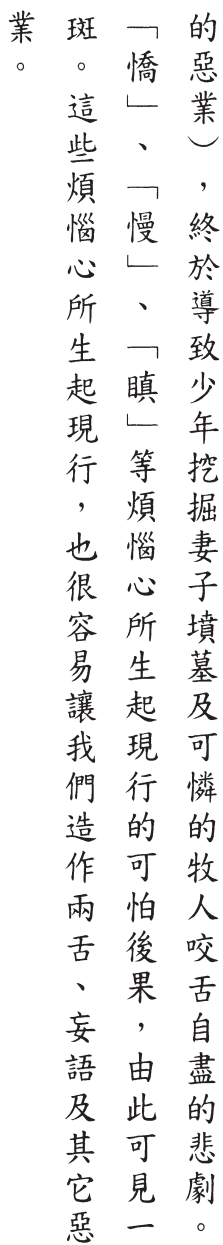 的惡業），終於導致少年挖掘妻子墳墓及可憐的牧人咬舌自盡的悲劇。
「憍」、「慢」、「瞋」等煩惱心所生起現行的可怕後果，由此可見一
斑。這些煩惱心所生起現行，也很容易讓我們造作兩舌、妄語及其它惡
業。